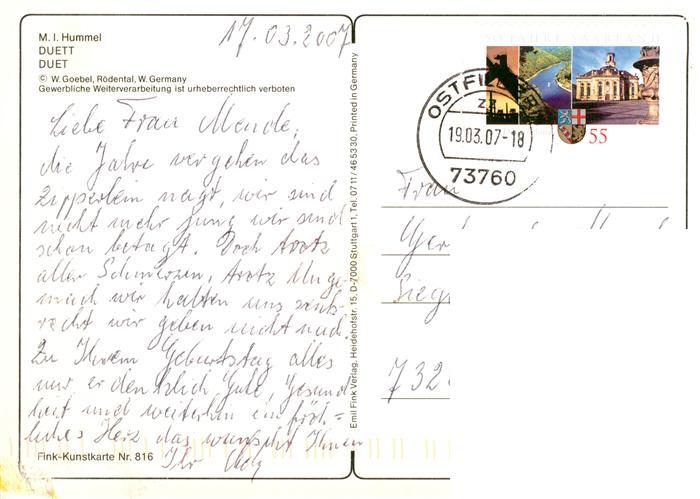 M. I. Hummel
DUETT
DUET
© W. Goebel, Rödental, W. Germany
Gewerbliche Weiterverarbeitung ist urheberrechtlich verboten
17.03.2007
Liebe Frau Mende,
die Jahre vergehen das
Zipperlein nagt, wir sind
nicht mehr jung wir sind
schon betagt. Doch trotz
aller Schmerzen, trotz Unge-
mach wir halten uns senk-
recht wir geben nicht nach.
Zu Ihrem Geburtstag alles
nur erdenklich Gute, Gesund
heit und weiterhin ein fröh=
liches Herz das wünscht Ihnen
Ihr
Fink-Kunstkarte Nr. 816
Emil Fink Verlag, Heidehofstr. 15, D-7000 Stuttgart 1, Tel. 0711/465330, Printed in Germany
50 JAHRE SAARLAND
55
OSTFIL
19.03.07-18
73760
Frau
Ger
Sieg
732